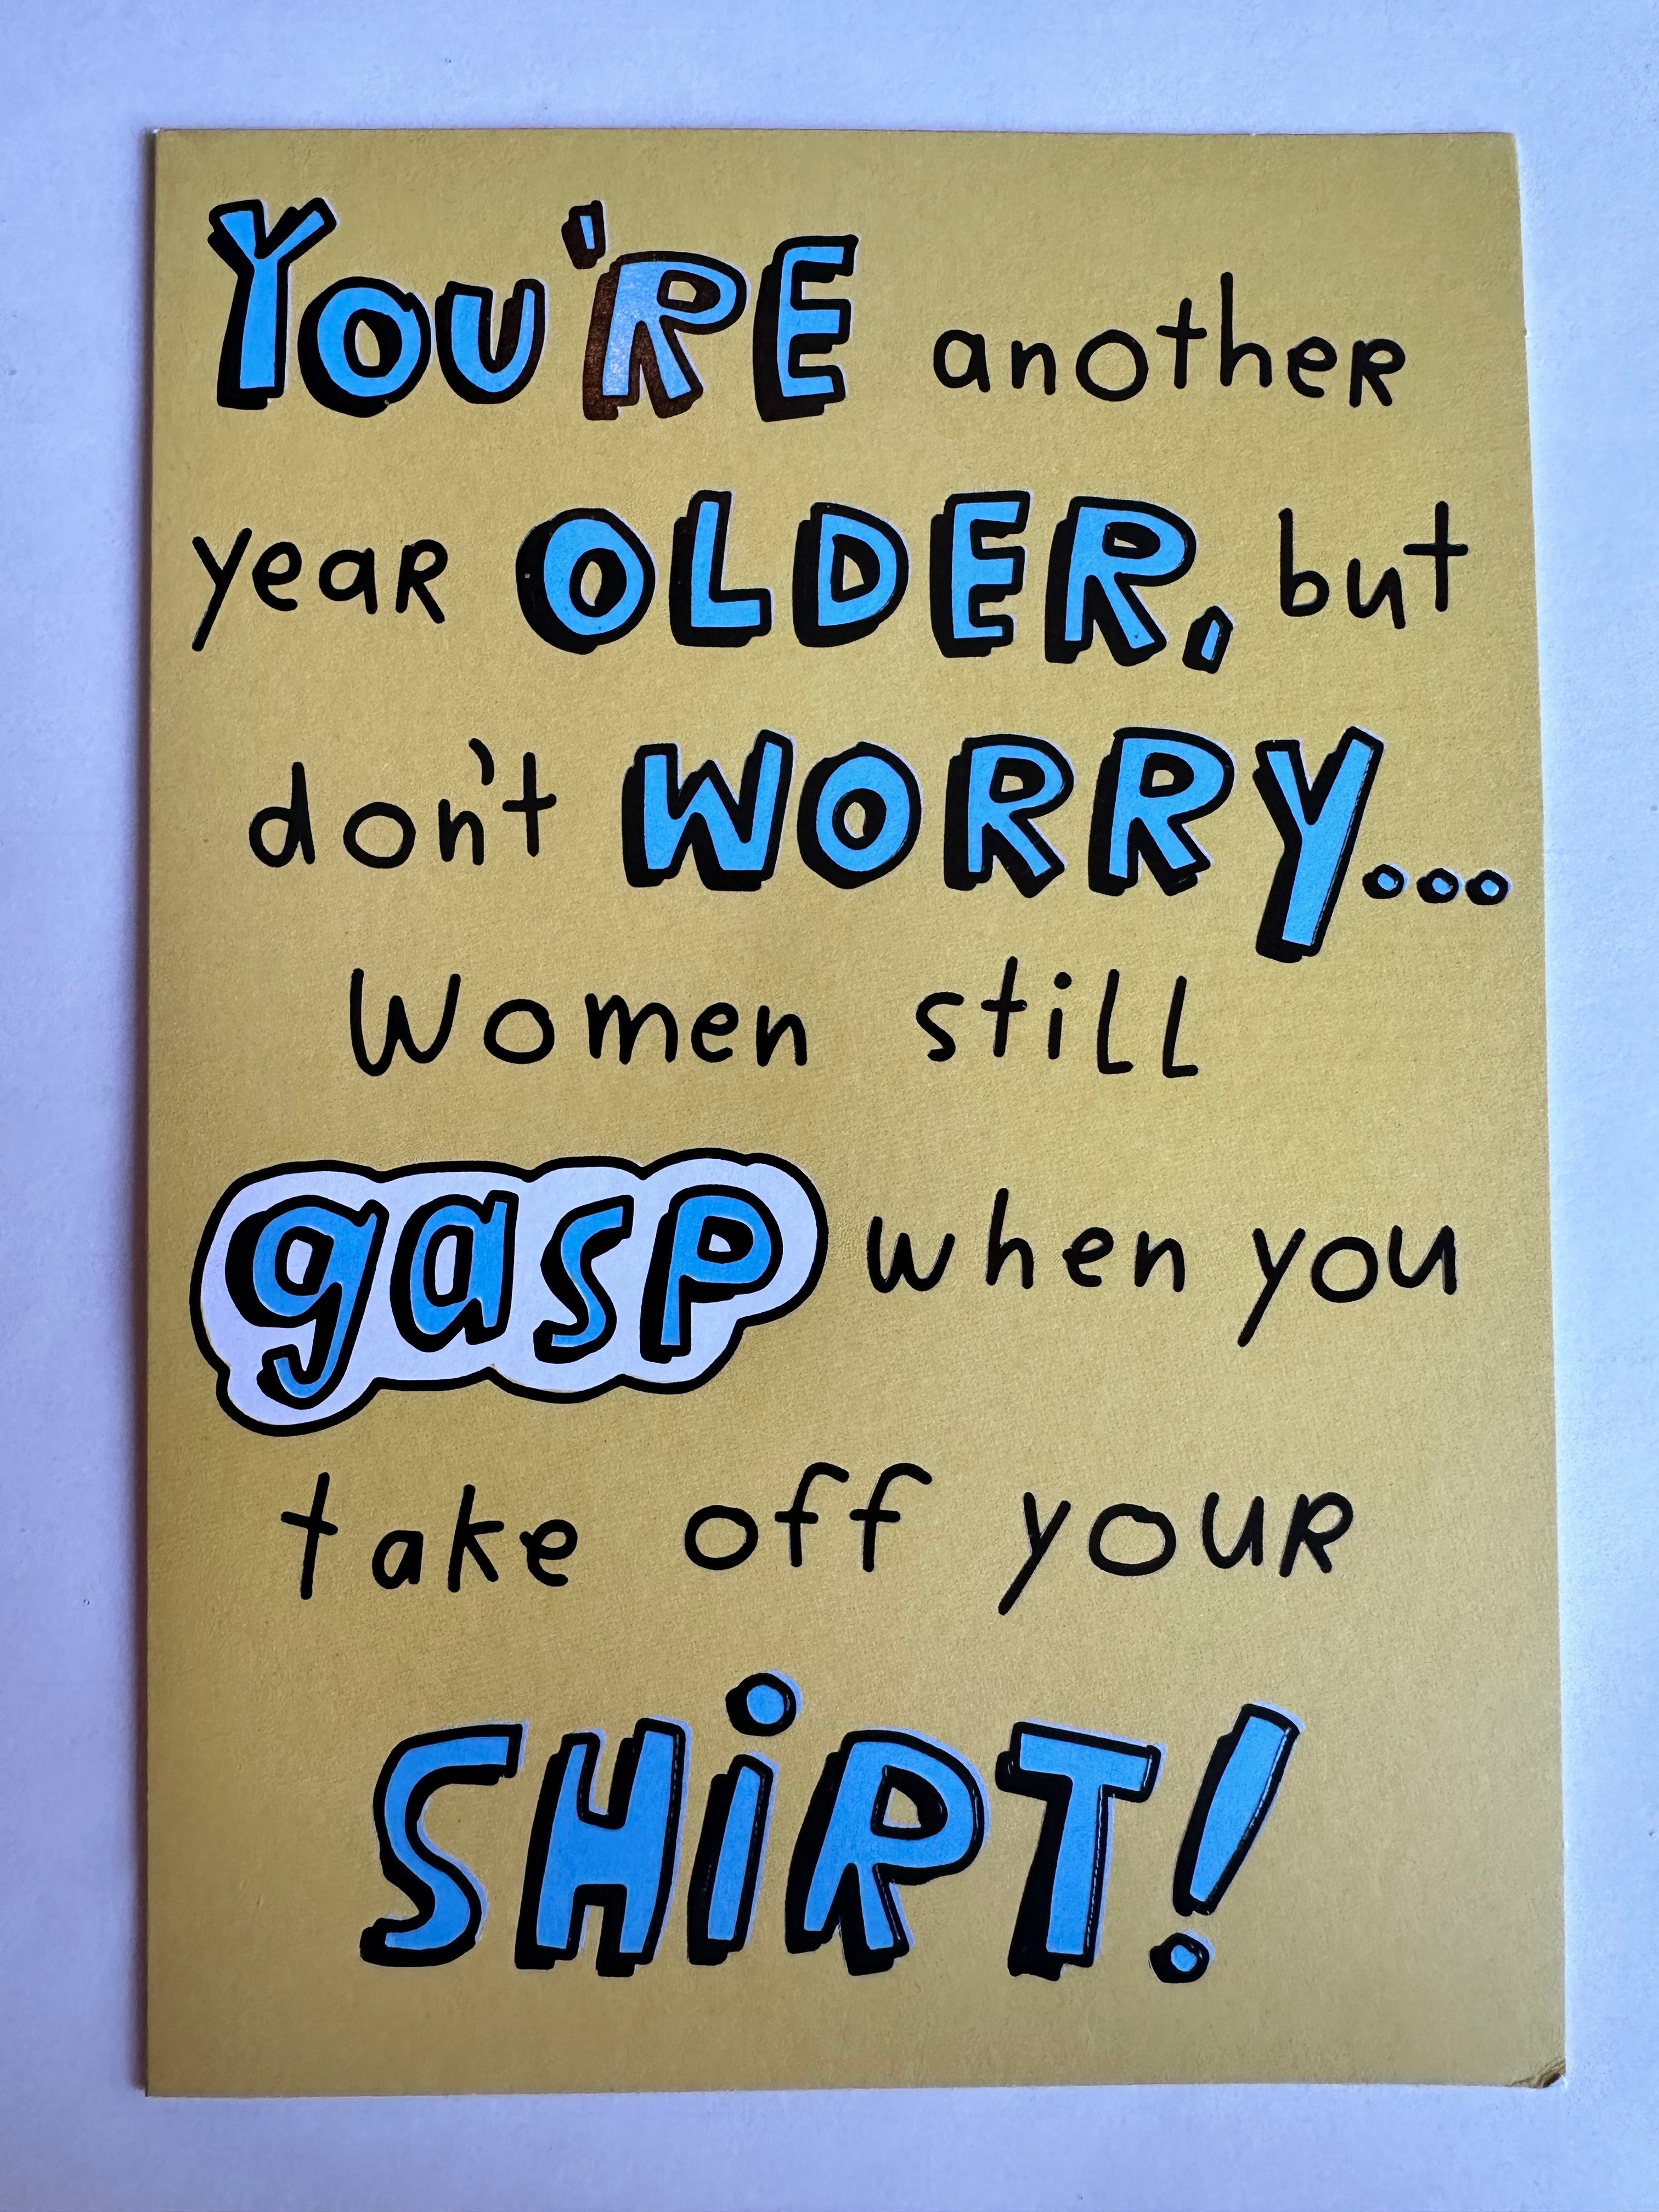 YOU'RE another
year OLDER, but
don't WORRY...
Women still
gasp when you
take off your
SHiRT!